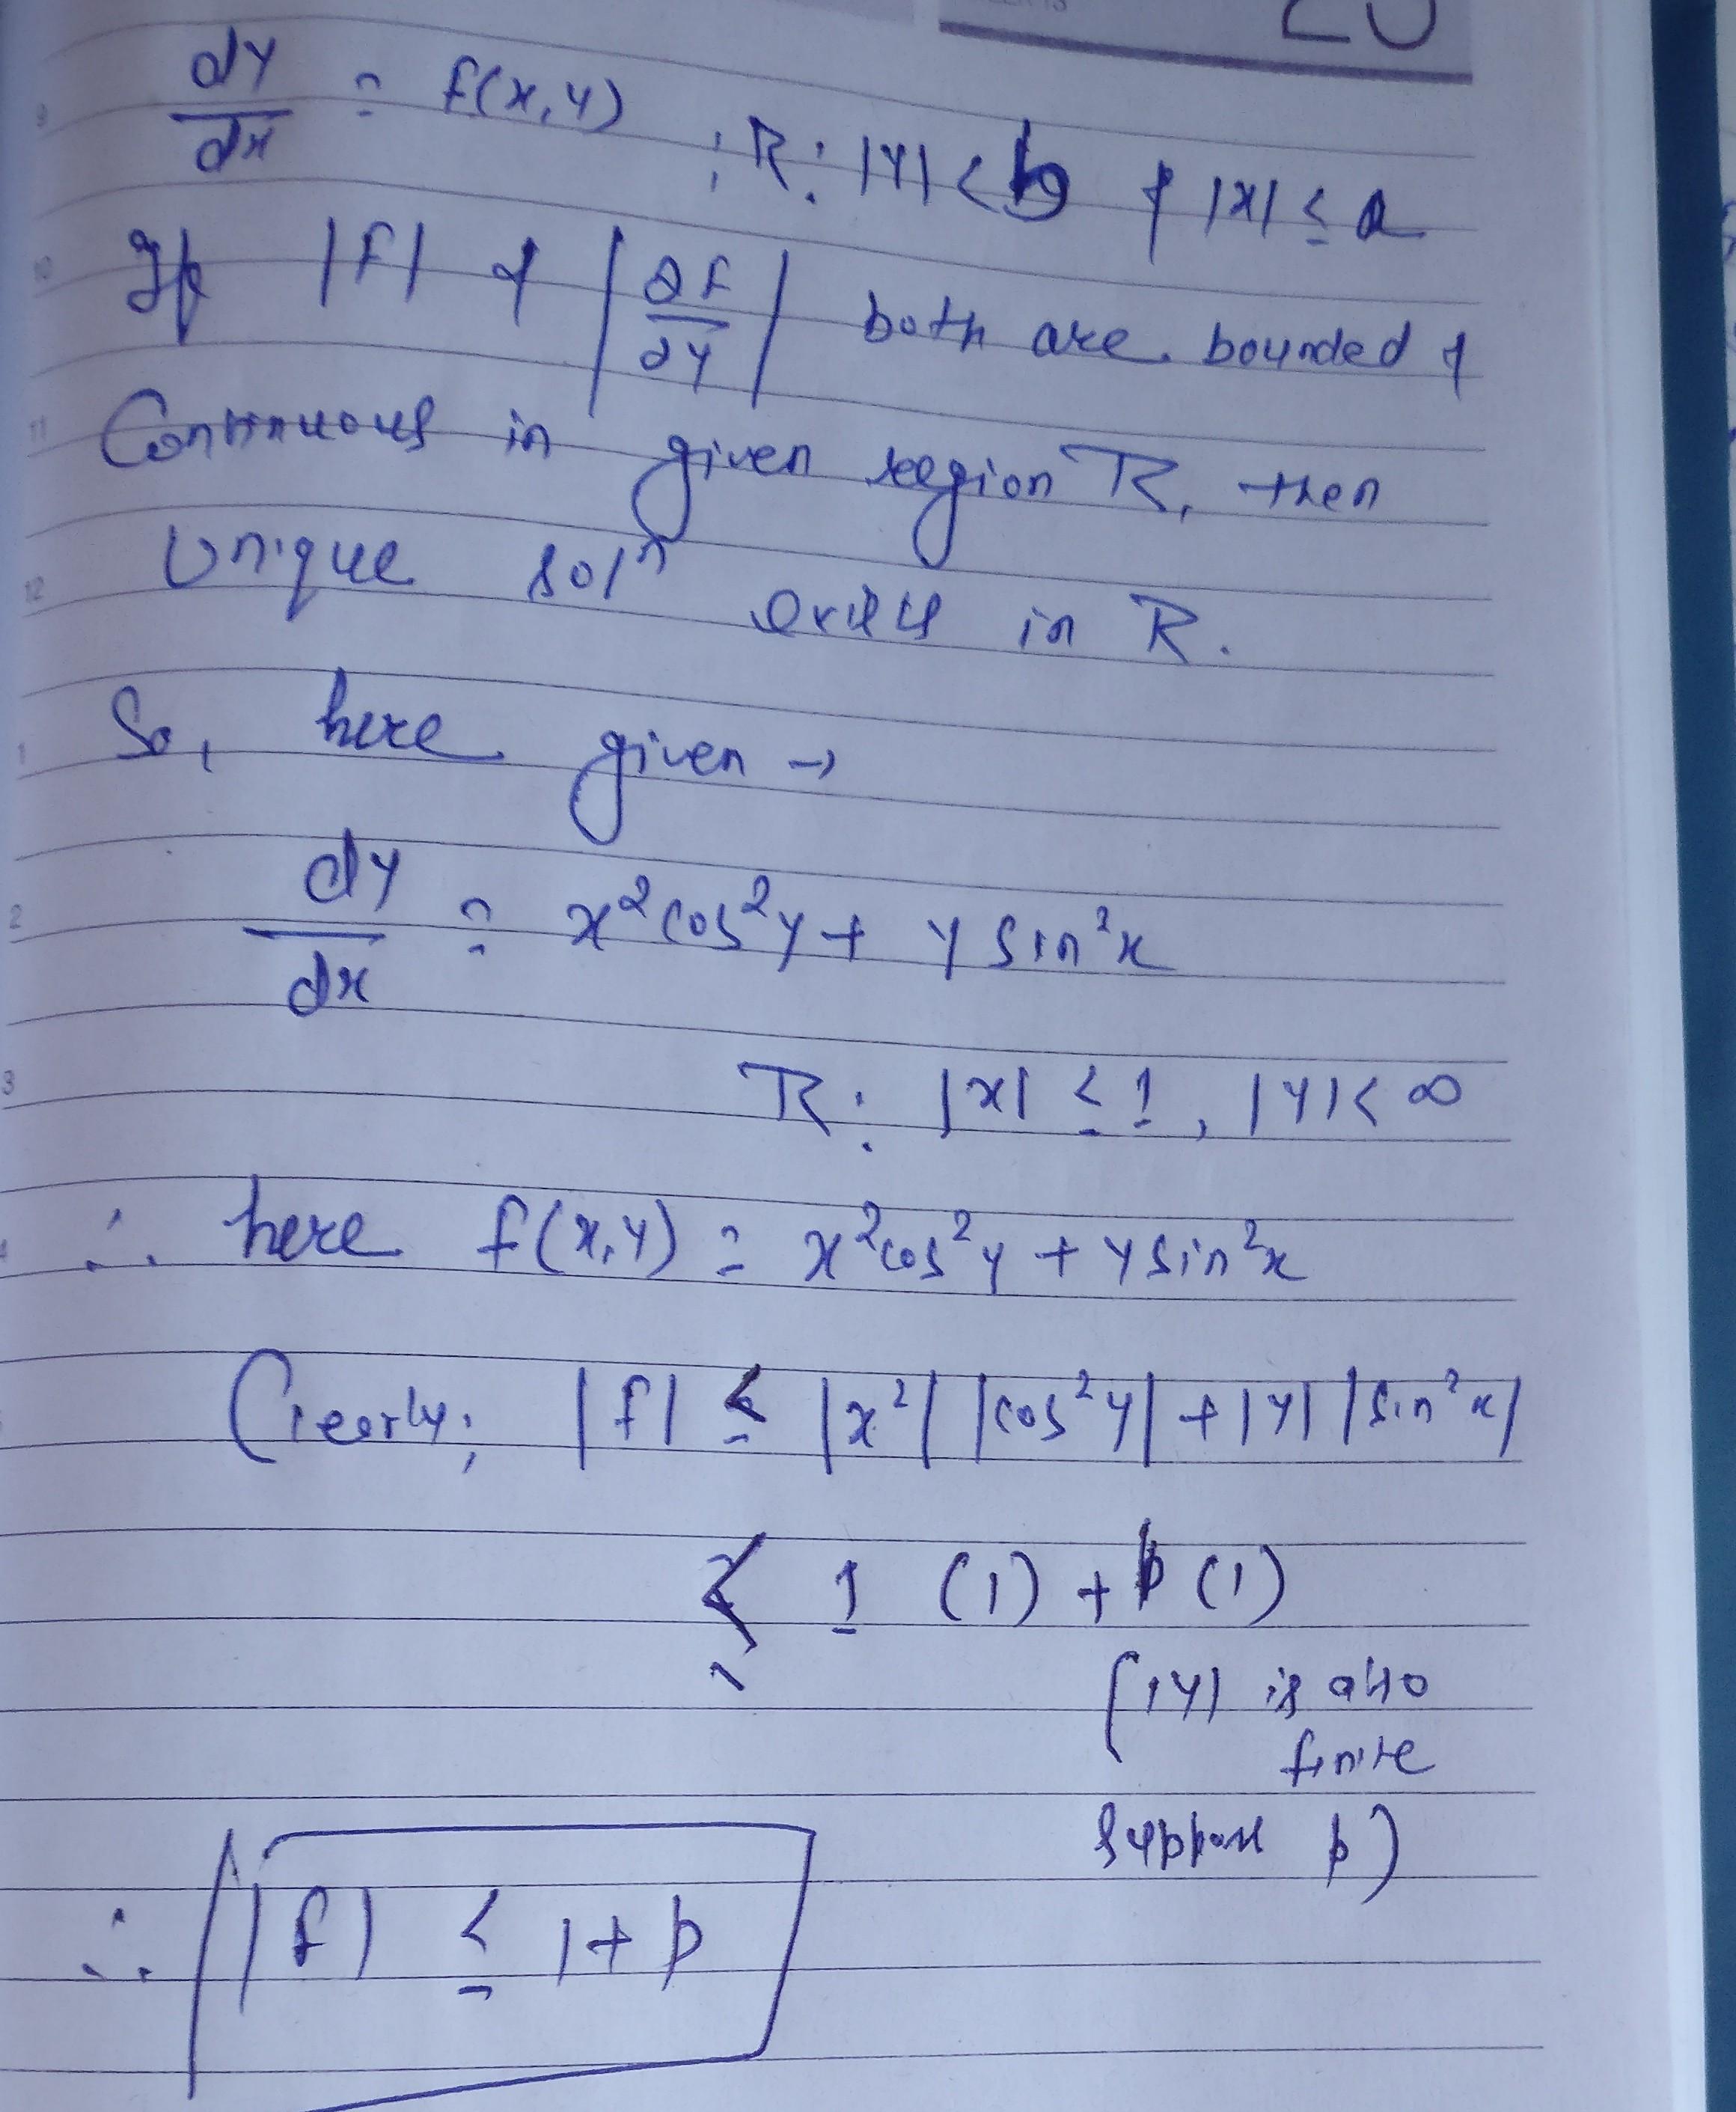 20
dy/dx = f(x,y) ; R: |y| < b & |x| ≤ a
If |f| & |∂f/∂y| both are bounded &
Continuous in given region R, then
Unique solⁿ exists in R.
So, here given →
dy/dx = x² cos² y + y sin² x
R: |x| ≤ 1, |y| < ∞
∴ here f(x,y) = x² cos² y + y sin² x
Clearly; |f| ≤ |x²| |cos² y| + |y| |sin² x|
≤ 1 (1) + p (1)
(|y| is also
finite
suppose p)
∴ |f| ≤ 1 + p
9
10
11
12
1
2
3
4